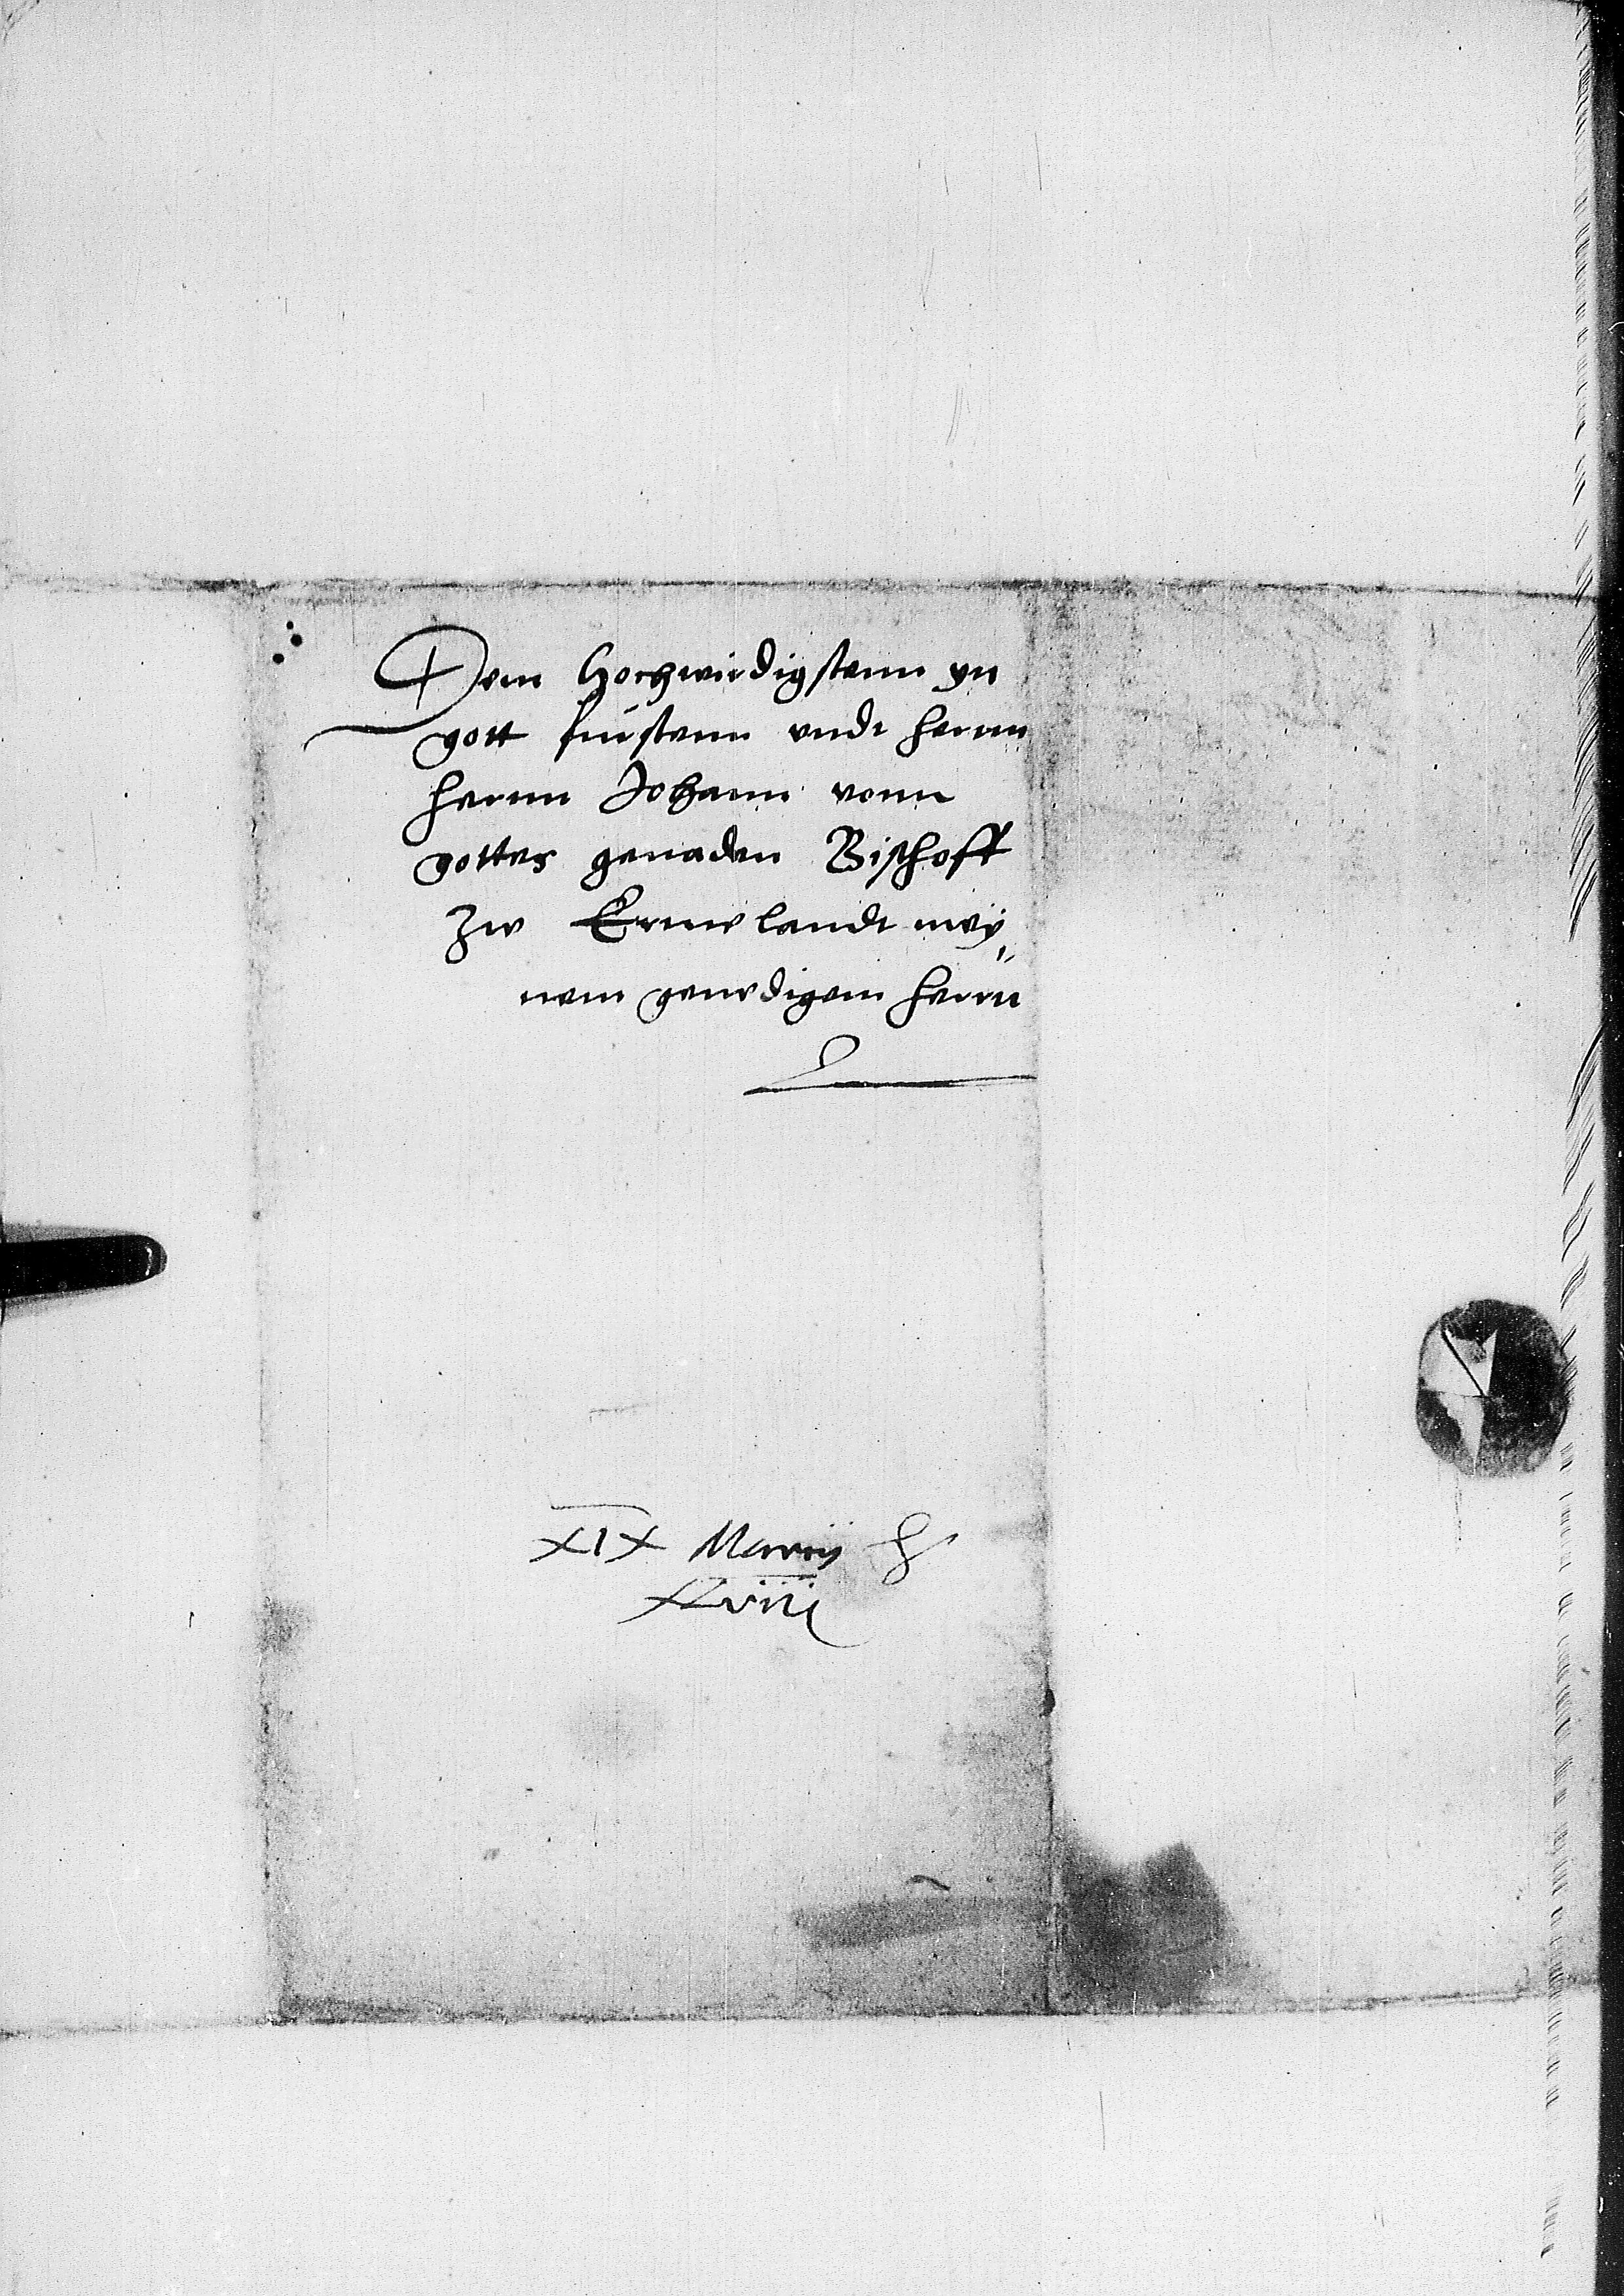 Dem Hochwirdigstenn yn
gott furstenn undt hernn
hernn Johann vonn
gottes genaden Bischoff
Zw Ermelandt mey„
nem genedigem herrn
XIX Marcij
Xlviii